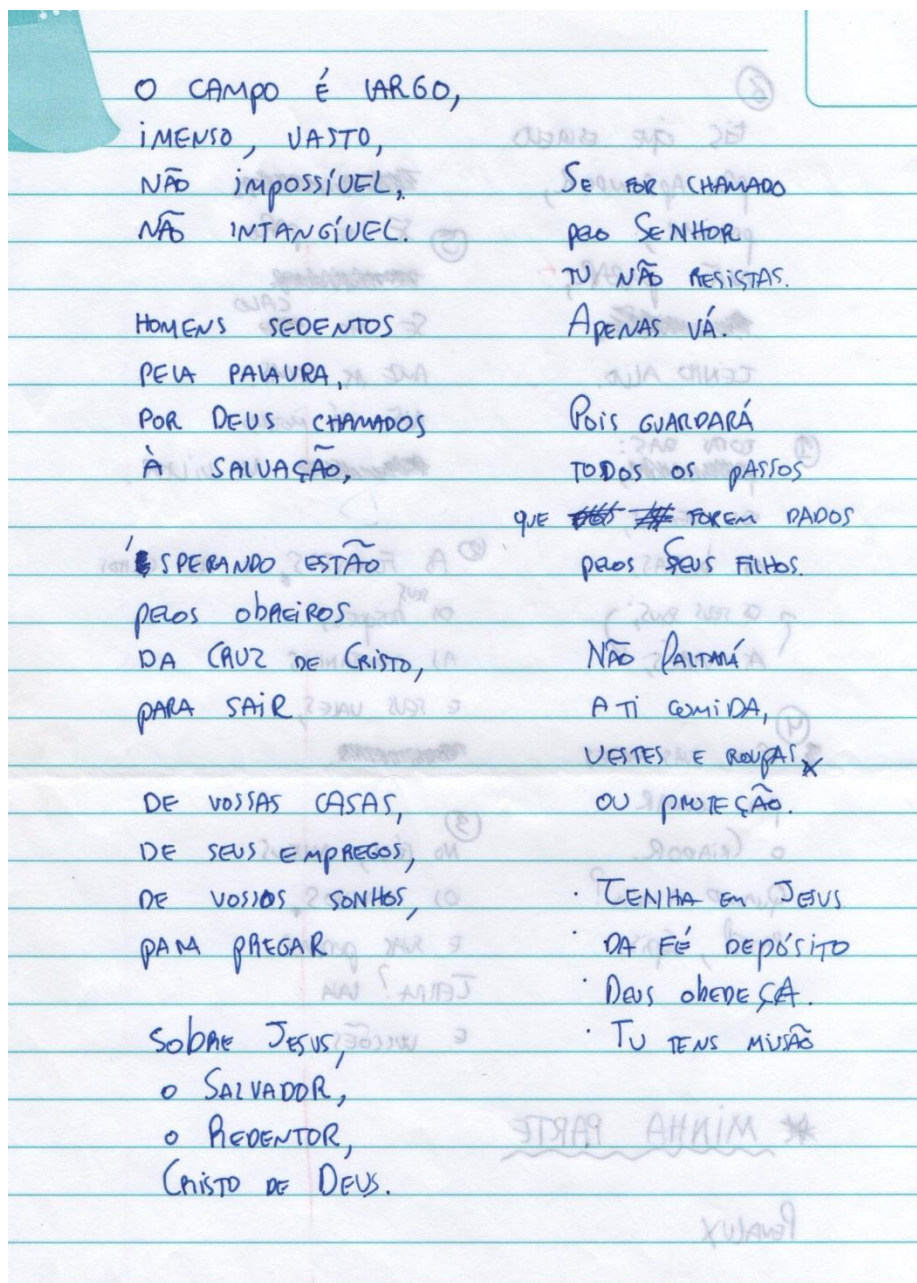 O CAMPO É LARGO,
IMENSO, VASTO,
NÃO IMPOSSÍVEL,
NÃO INTANGÍVEL.
HOMENS SEDENTOS
PELA PALAVRA,
POR DEUS CHAMADOS
À SALVAÇÃO,
ESPERANDO ESTÃO
PELOS OBREIROS
DA CRUZ DE CRISTO,
PARA SAIR
DE VOSSAS CASAS,
DE SEUS EMPREGOS,
DE VOSSOS SONHOS,
PARA PREGAR
SOBRE JESUS,
O SALVADOR,
O REDENTOR,
CRISTO DE DEUS.
SE FOR CHAMADO
PELO SENHOR
TU NÃO RESISTAS.
APENAS VÁ.
POIS GUARDARÁ
TODOS OS PASSOS
QUE FOREM DADOS
PELOS SEUS FILHOS.
NÃO FALTARÁ
A TI COMIDA,
VESTES E ROUPAS
OU PROTEÇÃO.
· TENHA EM JESUS
· DA FÉ DEPÓSITO
· DEUS OBEDEÇA.
· TU TENS MISSÃO
* MINHA PARTE
PENALUX